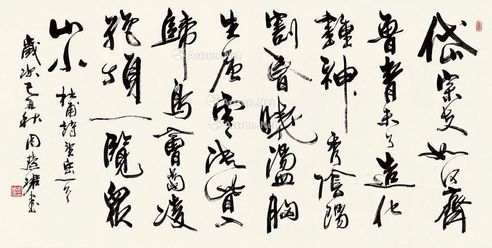 岱宗夫如何齊
魯青未了造化
鍾神秀陰陽
割昏曉盪胸
生層雲決眥入
歸鳥會當凌
絕頂一覽眾
山小
杜甫詩望岳一首
歲次己丑秋周慧珺書